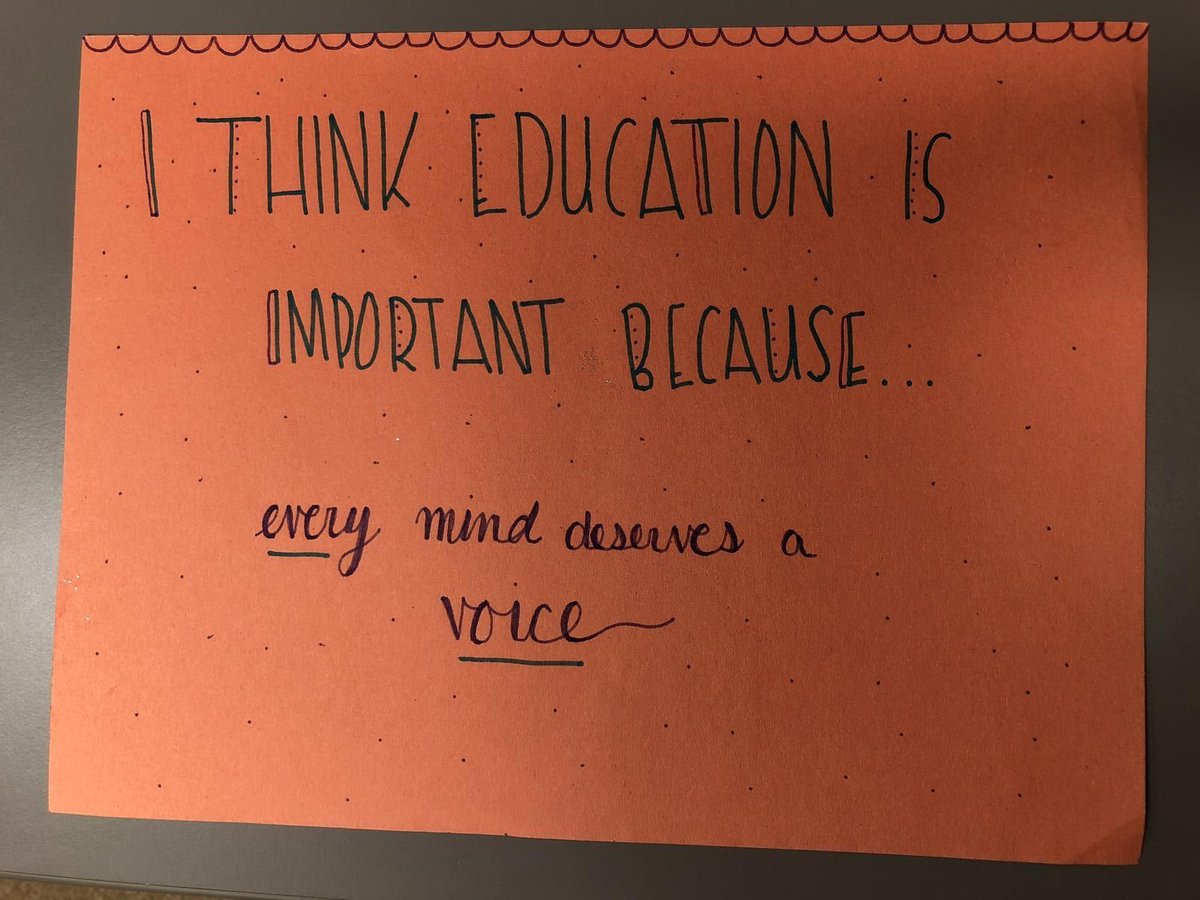 I THINK EDUCATION IS
IMPORTANT BECAUSE...
every mind deserves a
voice